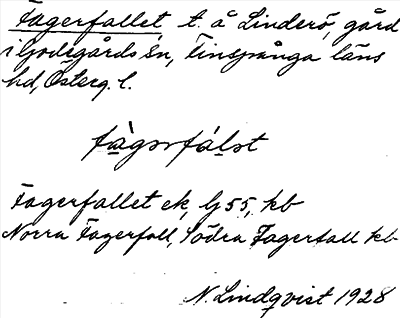 Fagerfallet t. å Linderö, gård
i Godegårds sn, Finspånga läns
hd, Österg. l.
fàgərfálət
Fagerfallet ek, G 55, kb
Norra Fagerfall, Södra Fagerfall kb
N. Lindqvist 1928